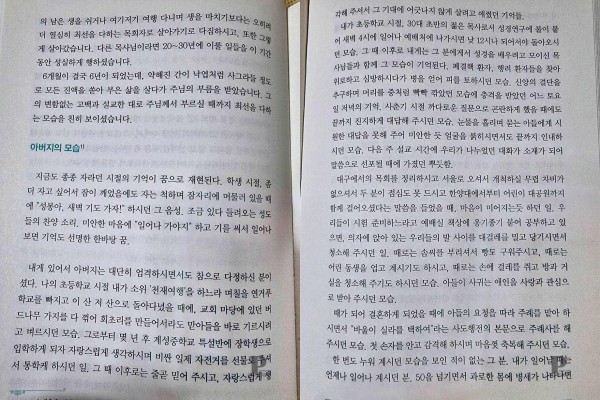 의 남은 생을 쉬거나 여기저기 여행 다니며 생을 마치기보다는 오히려
더 열심히 최선을 다하는 목회자로 살아가기로 다짐하시고, 또한 그렇
게 살아갔습니다. 다른 목사님이라면 20~30년에 이룰 일들을 이 기간
동안 성실하게 행하셨습니다.
6개월이 결국 6년이 되었는데, 약해진 간이 낙엽처럼 사그라들 정도
로 모든 진액을 쏟아 부은 삶을 살다가 주님의 부름을 받았습니다. 그
의 변함없는 고백과 설교한 대로 주님께서 부르실 때까지 최선을 다하
는 모습을 친히 보이셨습니다.
아버지의 모습
지금도 종종 자라던 시절의 기억이 꿈으로 재현된다. 학생 시절, 좀
더 자고 싶어서 잠이 깨었음에도 자는 척하며 잠자리에 머물러 있을 때
에 "정봉아, 새벽 기도 가자!" 하시던 그 음성. 조금 있다 들려오는 성도
들의 찬양 소리. 미안한 마음에 "일어나 가야지" 하고 기를 써서 일어나
보면 기억도 선명한 한바탕 꿈.
내게 있어서 아버지는 대단히 엄격하시면서도 참으로 다정하신 분이
셨다. 나의 초등학교 시절 내가 소위 '천재여행'을 하느라 며칠을 연거푸
학교를 빠지고 이 산 저 산으로 돌아다녔을 때에, 교회 마당에 있던 버
드나무 가지를 다 꺾어 회초리를 만들어서라도 맏아들을 바로 기르시려
고 벼르시던 모습. 그로부터 몇 년 후 계성중학교 특설반에 장학생으로
입학하게 되자 자랑스럽게 생각하시며 비싼 일제 자전거를 선물로 주셔
서 통학케 하시던 일. 그 때 이후로는 줄곧 믿어 주시고, 자랑스럽게 생
각해 주셔서 그 기대에 어긋나지 않게 살려고 애썼던 기억들.
내가 초등학교 시절, 30대 초반의 젊은 목사로서 성경연구에 불이 붙
어 새벽 4시에 일어나 예배처에 나가시면 낮 12시나 되어서야 돌아오시
던 모습. 그 때 이후로 내게는 그 분에게서 성경을 배우려고 모이신 목
사님들과 함께 그 모습이 기억된다. 폐결핵 환자, 행려 환자들을 찾아
위로하고 심방하시다가 병을 얻어 피를 토하시던 모습. 신앙의 결단을
추구하며 머리를 중처럼 빡빡 깎았던 모습에 충격을 받았던 어느 토요
일 저녁의 기억. 사춘기 시절 까다로운 질문으로 곤란하게 했을 때에도
끝까지 진지하게 대답해 주시던 모습. 눈물을 흘리며 묻는 아들에게 시
원한 대답을 못해 주어 미안한 듯 얼굴을 붉히시면서도 끝까지 인내하
시던 모습. 다음 주 설교 시간에 우리가 나누었던 대화가 소재가 되어
말씀으로 선포될 때에 가졌던 뿌듯함.
대구에서의 목회를 정리하시고 서울로 오셔서 개척하실 무렵 차비가
없으셔서 두 분이 점심도 못 드시고 한양대에서부터 어린이 대공원까지
함께 걸어오셨다는 말씀을 들었을 때, 마음이 미어지는 듯하던 일. 우
리들이 시험 준비하느라고 예배실 책상에 옹기종기 붙어 공부하고 있
으면, 의자에 앉아 있는 우리들의 발 사이를 대걸레를 밀고 당기시면서
청소해 주시던 일. 때로는 솜씨를 부리셔서 빵도 구워주시고, 때로는
어린 동생을 업고 계시기도 하시고, 때로는 손에 걸레를 쥐고 방과 거
실을 청소해 주기도 하시던 모습. 아들이 사귀는 애인을 사랑과 관심으
로 받아 주시던 모습.
때가 되어 결혼하게 되었을 때에 아들의 요청을 따라 주례를 맡아 하
시면서 "바울이 실라를 택하여"라는 사도행전의 본문으로 주례사를 해
주시던 모습. 첫 손자를 안고 감격해 하시며 마음껏 축복해 주시던 모습.
한 번도 누워 계시던 모습을 보인 적이 없는 그 분. 내가 일어났을 때는
언제나 일어나 계시던 분. 50을 넘기면서 과로한 몸에 병세가 나타나면